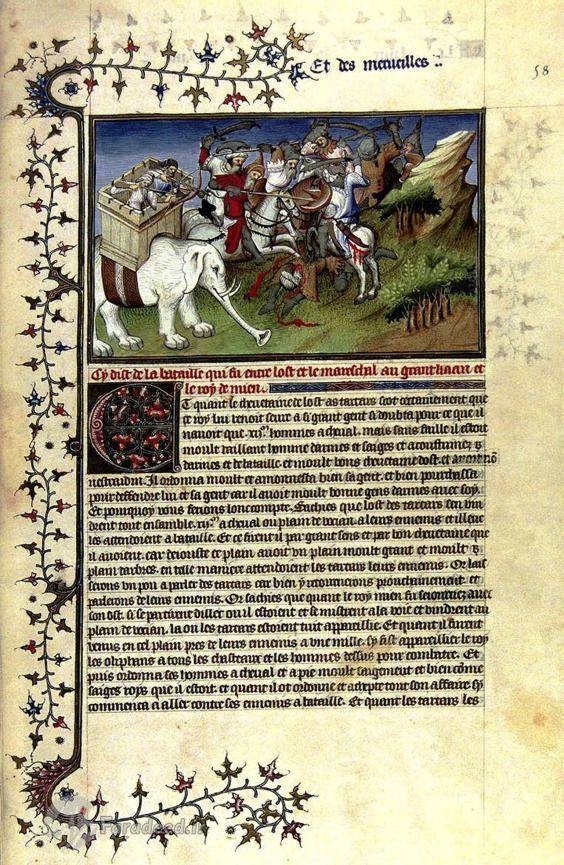 Et des merueilles
58
Cy dist de la bataille qui fu entre lost et le mareschal au grant kaan et
le roy de mien.
Et quant le cheuetaine de lost as tartars scot certainement que
ce roy lui venoit seure a si grant gent si doubta pour ce que il
nauoit que .xii.m hommes a cheual. mais sans faille il estoit
moult vaillant homme darmes et saiges et acoustumez
darmes et de bataille et moult bons cheuetaine dost. et auoit nō
nestraidin. Il ordonna moult et amonnesta bien sa gent. et bien pourchassa
pour deffendre lui et sa gent car il auoit moult bonne gens darmes auec soy.
Et pourquoy vous feroie loncompte. Sachies que lost des tartars sen vin
drent tout ensamble .xij.m a cheual ou plain de vocian. a leurs ennemis et illeuc
les attendoient a bataille. Et ce firent il par grant sens et par bon cheuetaine que
il auoient. car de iouste ce plain auoit vn plain moult grant et moult
plain darbres. en telle maniere attendoient les tartars leurs ennemis. Or lais
serons vn pou a parler des tartars car bien y retournerons prouchainement. et
parlerons de leurs ennemis. Or sachies que quant le roy mien fu seiournez auec
son ost. si se partirent dillec ou il estoient et se mistrent a la voie et vindrent au
plain de vocian. la ou les tartars estoient tuit appareillie. Et quant il furent
venus en cel plain pres de leurs ennemis a vne mille. sy fist appareillier le roy
les oliphans a tous les chasteaux et les hommes dessus pour combatre. Et
puis ordonna ses hommes a cheual et a pie moult saigement et bien cōme
saiges roys que il estoit. et quant il ot ordonne et adrepte tout son affaire sy
commenca a aller contre ses ennemis a bataille. Et quant les tartars les
Faradeed.ir